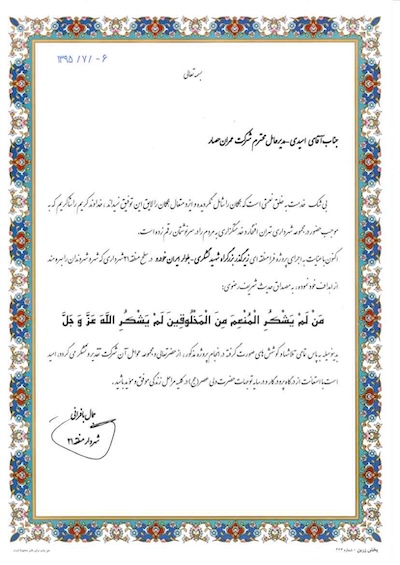 ۱۳۹۵/۷/۰۶
بسمه تعالی
جناب آقای امیدی - مدیرعامل محترم شرکت عمران حصار
بی شک خدمت به خلق نعمتی است که همگان را شامل نگردیده و ایزد متعال همگان را لایق این توفیق نمیداند، خداوند کریم را شاکریم که به
موجب حضور در مجموعه شهرداری تهران افتخار خدمتگزاری به مردم را در سرنوشتمان رقم زده است.
اکنون با عنایت به اجرای پروژه فرامنطقه ای زیرگذر بزرگراه شهید لشگری - بلوار ایران خودرو در سطح منطقه ۲۱ شهرداری که شهر و شهروندان را بهره مند
از اهداف خود نموده، به مصداق حدیث شریف رضوی:
مَنْ لَمْ يَشْكُرِ الْمُنْعِمَ مِنَ الْمَخْلُوقِينَ لَمْ يَشْكُرِ اللَّهَ عَزَّ وَ جَلَّ
بدینوسیله به پاس تمامی تلاشها و کوشش های صورت گرفته در انجام پروژه مذکور، از حضرتعالی و مجموعه عوامل آن شرکت تقدیر و تشکر می گردد، امید
است با استعانت از درگاه پروردگار و در سایه توجهات حضرت ولی عصر (عج) در کلیه مراحل زندگی موفق و موید باشید.
جمال بافرانی
شهردار منطقه ۲۱
پخش زرین - شماره